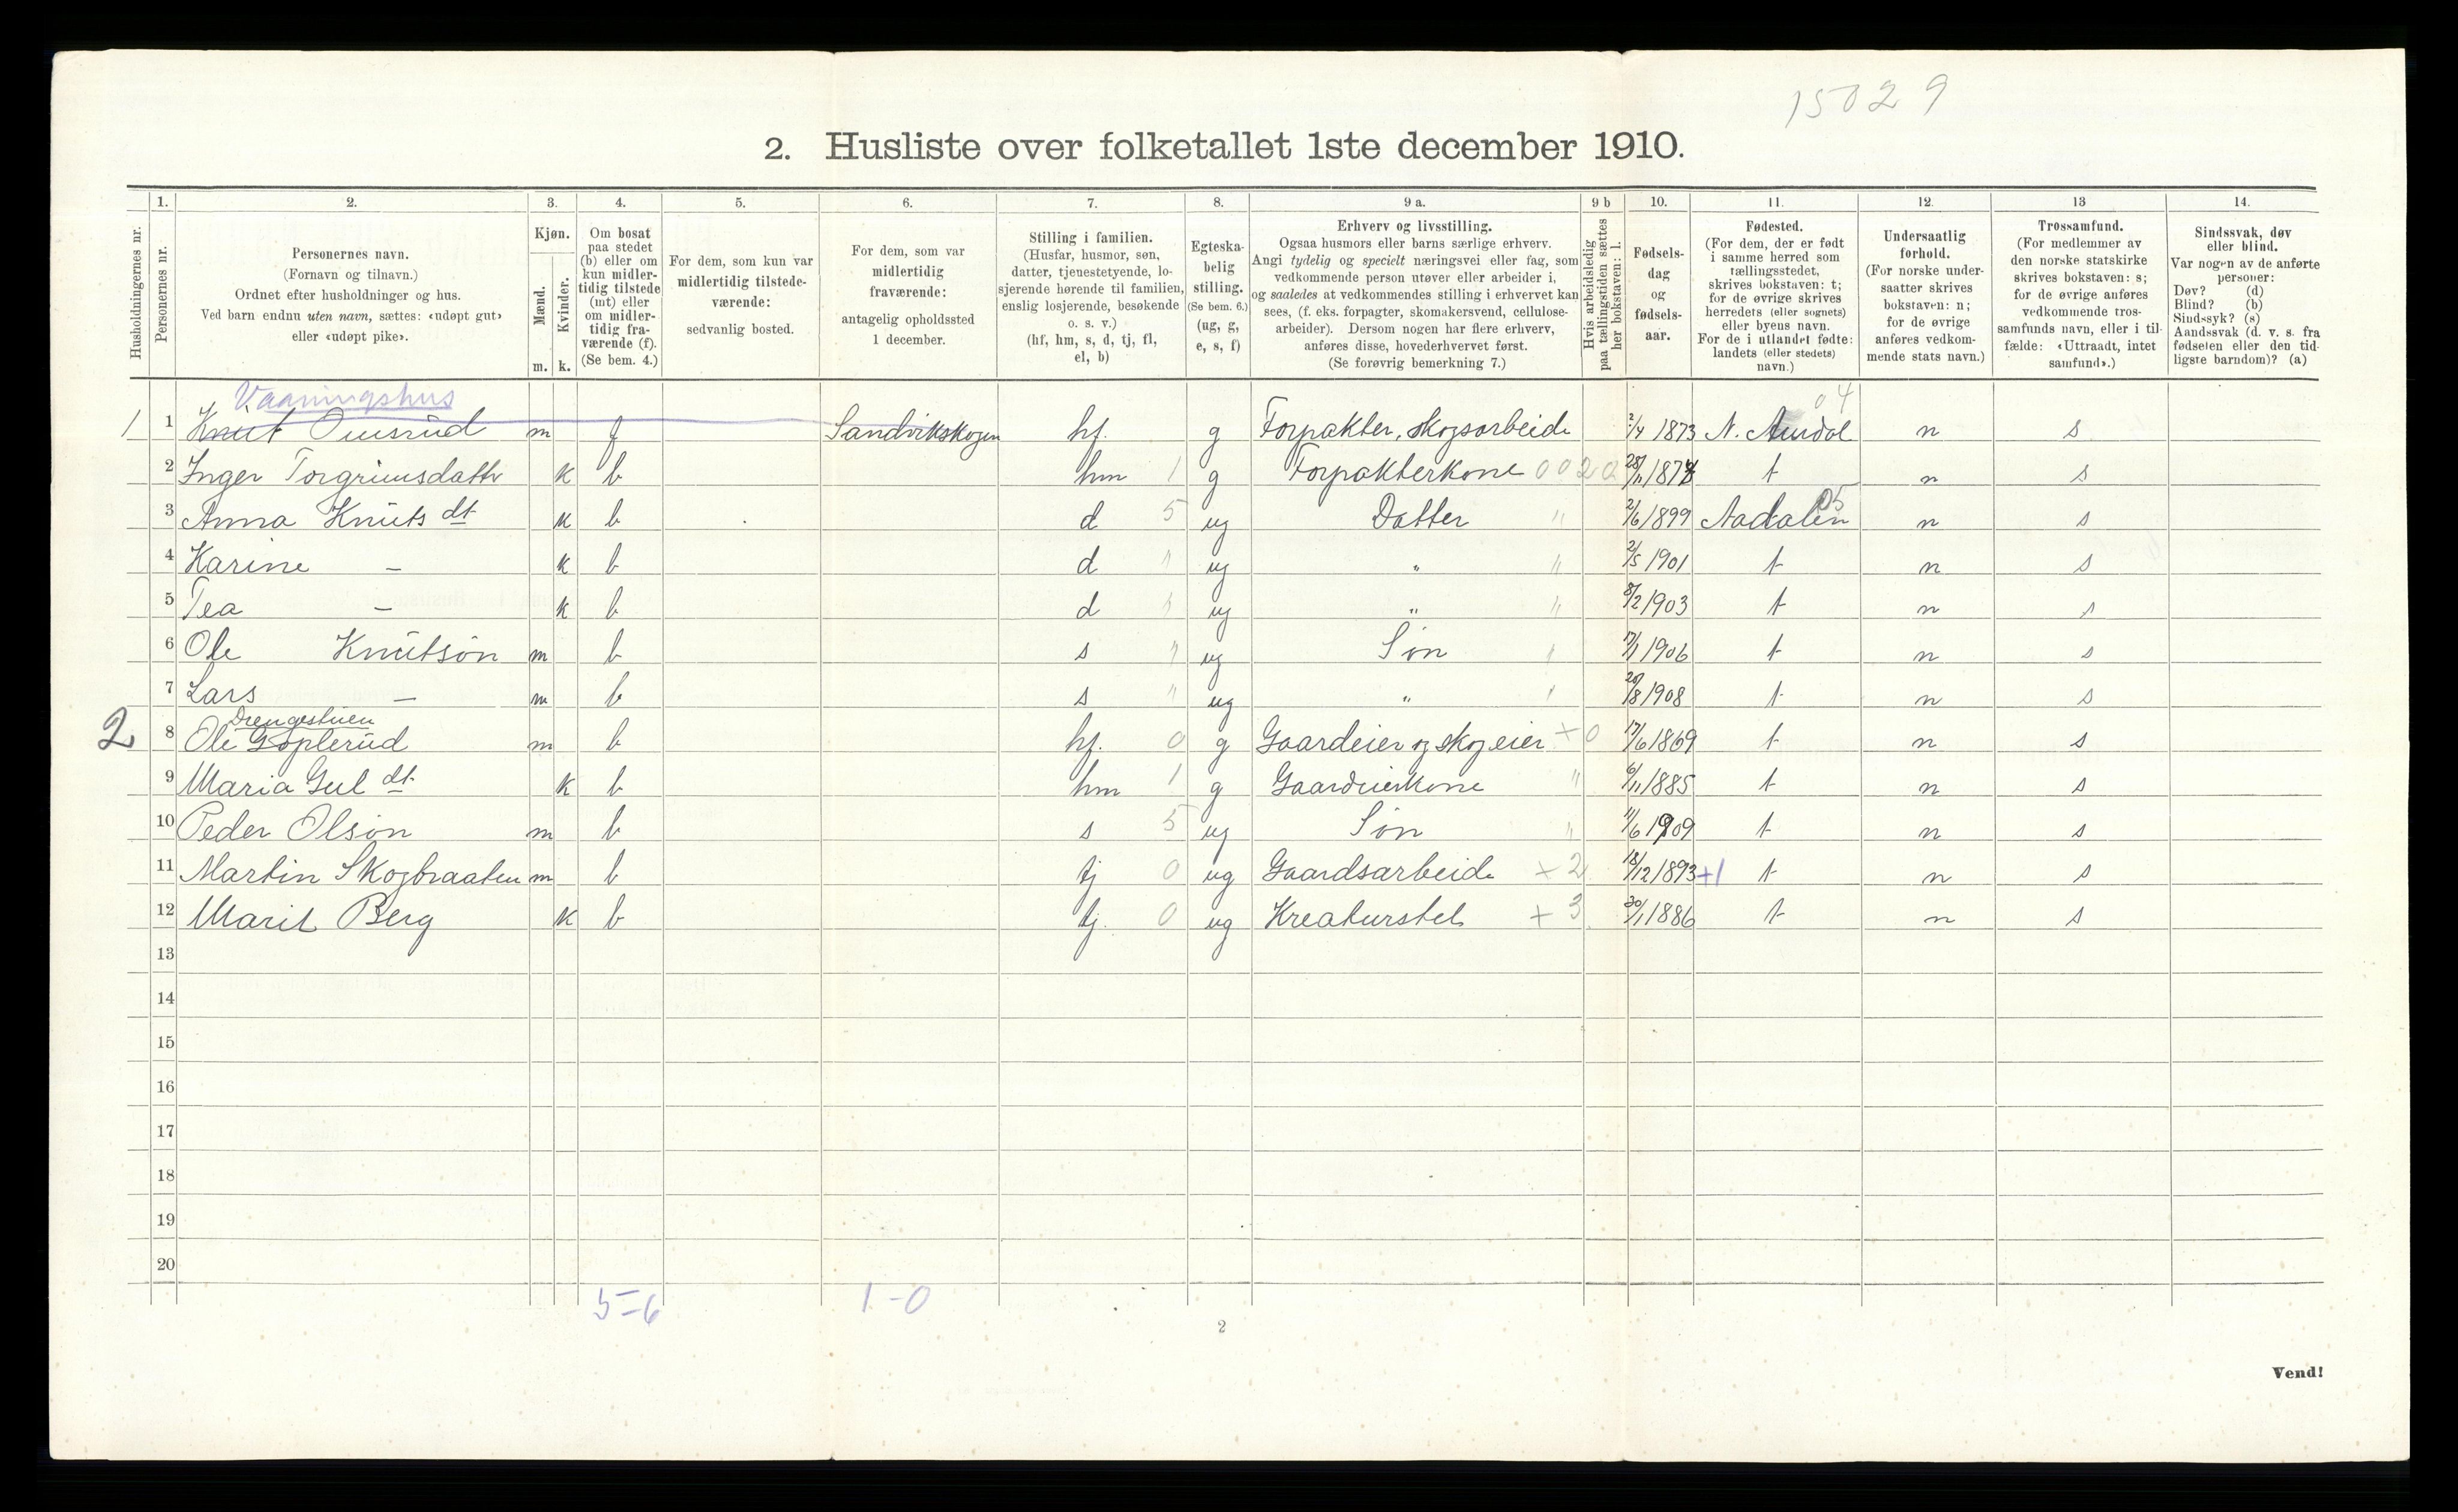 15029
2. Husliste over folketallet 1ste december 1910.
1. 2. 3. 4. 5. 6. 7. 8. 9 a. 9 b 10. 11. 12. 13 14.
Husholdningernes nr.
Personernes nr.
Personernes navn.
(Fornavn og tilnavn.)
Ordnet efter husholdninger og hus.
Ved barn endnu uten navn, sættes: «udøpt gut»
eller «udøpt pike».
Kjøn.
Mænd.
Kvinder.
m. k.
Om bosat
paa stedet
(b) eller om
kun midler-
tidig tilstede
(mt) eller
om midler-
tidig fra-
værende (f).
(Se bem. 4.)
For dem, som kun var
midlertidig tilstede-
værende:
sedvanlig bosted.
For dem, som var
midlertidig
fraværende:
antagelig opholdssted
1 december.
Stilling i familien.
(Husfar, husmor, søn,
datter, tjenestetyende, lo-
sjerende hørende til familien,
enslig losjerende, besøkende
o. s. v.)
(hf, hm, s, d, tj, fl,
el, b)
Egteska-
belig
stilling.
(Se bem. 6.)
(ug, g,
e, s, f)
Erhverv og livsstilling.
Ogsaa husmors eller barns særlige erhverv.
Angi tydelig og specielt næringsvei eller fag, som
vedkommende person utøver eller arbeider i,
og saaledes at vedkommendes stilling i erhvervet kan
sees, (f. eks. forpagter, skomakersvend, cellulose-
arbeider). Dersom nogen har flere erhverv,
anføres disse, hovederhvervet først.
(Se forøvrig bemerkning 7.)
Hvis arbeidsledig
paa tællingstiden sættes
her bokstaven: l.
Fødsels-
dag
og
fødsels-
aar.
Fødested.
(For dem, der er født
i samme herred som
tællingsstedet,
skrives bokstaven: t;
for de øvrige skrives
herredets (eller sognets)
eller byens navn.
For de i utlandet fødte:
landets (eller stedets)
navn.)
Undersaatlig
forhold.
(For norske under-
saatter skrives
bokstaven: n;
for de øvrige
anføres vedkom-
mende stats navn.)
Trossamfund.
(For medlemmer av
den norske statskirke
skrives bokstaven: s;
for de øvrige anføres
vedkommende tros-
samfunds navn, eller i til-
fælde: «Uttraadt, intet
samfund».)
Sindssvak, døv
eller blind.
Var nogen av de anførte
personer:
Døv? (d)
Blind? (b)
Sindssyk? (s)
Aandssvak (d. v. s. fra
fødselen eller den tid-
ligste barndom)? (a)
Vaaningshus 04
1 1 Knut Omsrud m f Sandvikskogen hf. g Forpakter, skogsarbeide 2/4 1873 N. Aurdal n s
2 Inger Torgrimsdatter k b hm 1 g Forpakterkone 0020 28/11 1874 t n s
3 Anna Knuts dt k b d 5 ug Datter " 2/6 1899 Aadalen 05 n s
4 Karine – k b d " ug " " 2/5 1901 t n s
5 Tea – k b d " ug " " 8/2 1903 t n s
6 Ole Knutson m b s " ug Søn " 17/1 1906 t n s
7 Lars – m b s " ug " " 20/8 1908 t n s
Drengestuen
2 8 Ole Goplerud m b hf. 0 g Gaardeier og skogeier + 0 17/6 1869 t n s
9 Maria Gul dt k b hm 1 g Gaardeierkone " 6/11 1885 t n s
10 Peder Olson m b s 5 ug Søn " 11/6 1909 t n s
11 Martin Skogbraaten m b tj 0 ug Gaardsarbeide + 2 18/12 1893 +1 t n s
12 Marit Berg k b tj. 0 ug Kreaturstel + 3 30/1 1886 t n s
13
14
15
16
17
18
19
20
5=6 1-0
2
Vend!